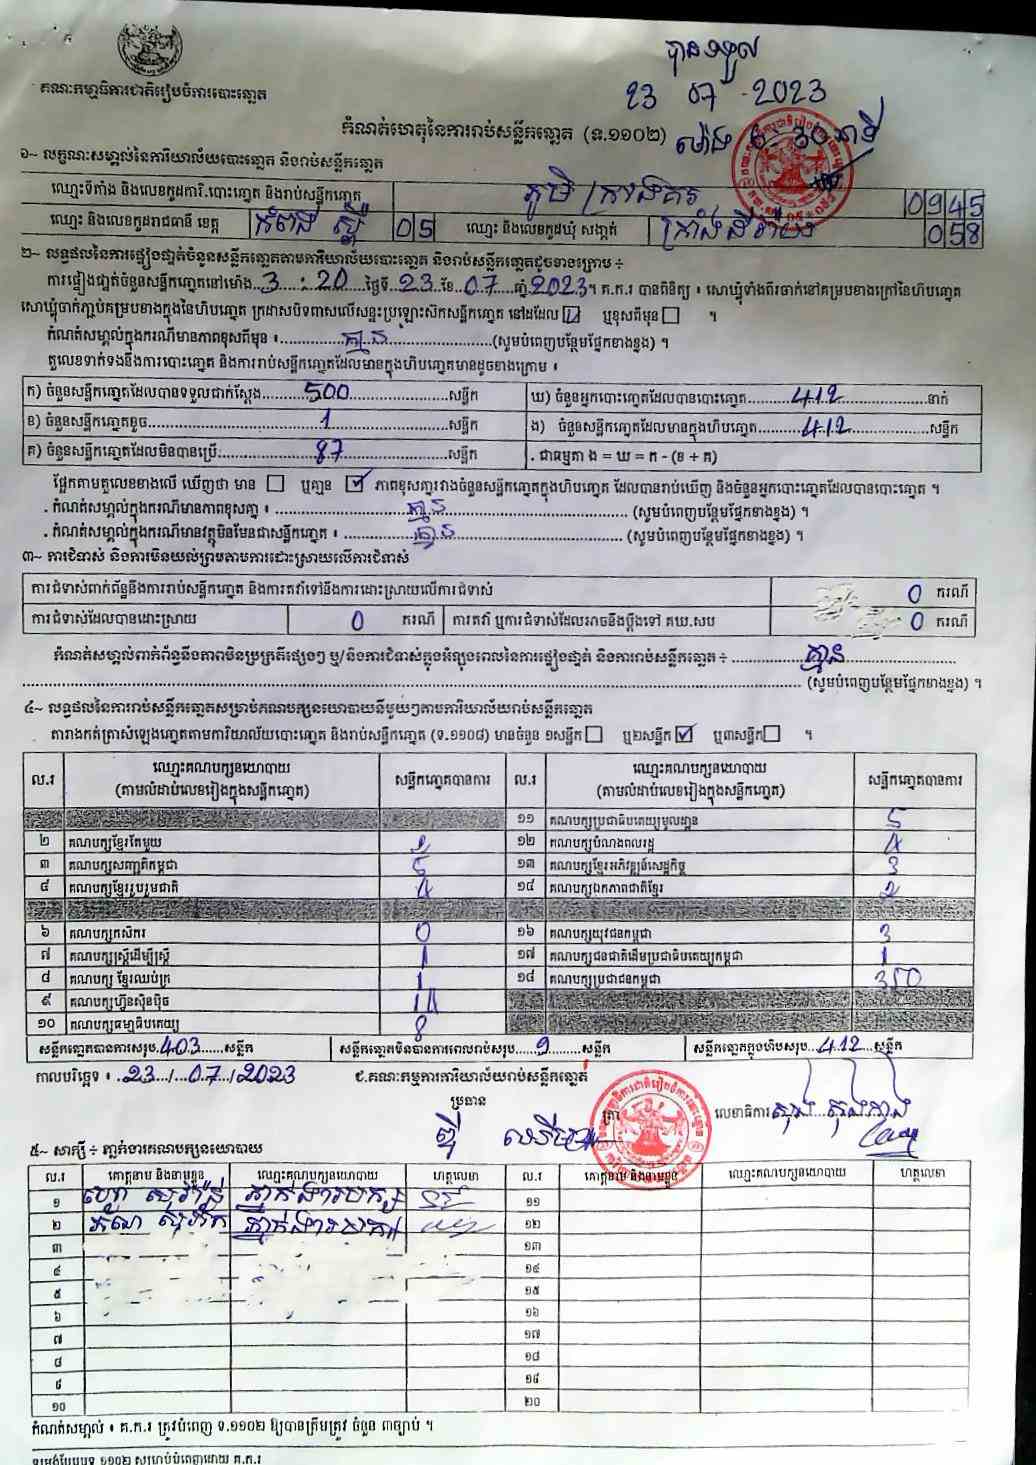 បានទទួល
23 07 - 2023
គណៈកម្មាធិការជាតិរៀបចំការបោះឆ្នោត
កំណត់ហេតុនៃការរាប់សន្លឹកឆ្នោត (ទ.១១០២) ម៉ោង
១~ លក្ខណៈសម្គាល់នៃការិយាល័យបោះឆ្នោត និងរាប់សន្លឹកឆ្នោត
ឈ្មោះទីតាំង និងលេខកូដការិ.បោះឆ្នោត និងរាប់សន្លឹកឆ្នោត ភូមិ ក្រាំងគរ 0945
ឈ្មោះ និងលេខកូដរាជធានី ខេត្ត កំពង់ ស្ពឺ 05 ឈ្មោះ និងលេខកូដឃុំ សង្កាត់ 058
២~ លទ្ធផលនៃការផ្ទៀងផ្ទាត់ចំនួនសន្លឹកឆ្នោតតាមការិយាល័យបោះឆ្នោត និងរាប់សន្លឹកឆ្នោតដូចខាងក្រោម ÷
ការផ្ទៀងផ្ទាត់ចំនួនសន្លឹកឆ្នោតនៅម៉ោង 3 : 20 ថ្ងៃទី 23 ខែ 07 ឆ្នាំ 2023 ។ គ.ក.រ បានពិនិត្យ ៖ សោឃ្មុំទាំងពីរចាក់នៅគម្របខាងក្រៅនៃហិបឆ្នោត
សោឃ្មុំចាក់ភ្ជាប់គម្របខាងក្នុងនៃហិបឆ្នោត ក្រដាសបិទពាសលើសន្ទះប្រឡោះស៊កសន្លឹកឆ្នោត នៅដដែល ☑ ឬខុសពីមុន ☐ ។
កំណត់សម្គាល់ក្នុងករណីមានភាពខុសពីមុន ៖ គ្មាន (សូមបំពេញបន្ថែមផ្នែកខាងខ្នង) ។
តួលេខទាក់ទងនឹងការបោះឆ្នោត និងការរាប់សន្លឹកឆ្នោតដែលមានក្នុងហិបឆ្នោតមានដូចខាងក្រោម ៖
ក) ចំនួនសន្លឹកឆ្នោតដែលបានទទួលជាក់ស្តែង 500 សន្លឹក ឃ) ចំនួនអ្នកបោះឆ្នោតដែលបានបោះឆ្នោត 412 នាក់
ខ) ចំនួនសន្លឹកឆ្នោតខូច 1 សន្លឹក ង) ចំនួនសន្លឹកឆ្នោតដែលមានក្នុងហិបឆ្នោត 412 សន្លឹក
គ) ចំនួនសន្លឹកឆ្នោតដែលមិនបានប្រើ 87 សន្លឹក . ជាធម្មតា ង = ឃ = ក - (ខ + គ)
ផ្អែកតាមតួលេខខាងលើ ឃើញថា មាន ☐ ឬគ្មាន ☑ ភាពខុសគ្នារវាងចំនួនសន្លឹកឆ្នោតក្នុងហិបឆ្នោត ដែលបានរាប់ឃើញ និងចំនួនអ្នកបោះឆ្នោតដែលបានបោះឆ្នោត ។
. កំណត់សម្គាល់ក្នុងករណីមានភាពខុសគ្នា ៖ គ្មាន (សូមបំពេញបន្ថែមផ្នែកខាងខ្នង) ។
. កំណត់សម្គាល់ក្នុងករណីមានវត្ថុមិនមែនជាសន្លឹកឆ្នោត ៖ គ្មាន (សូមបំពេញបន្ថែមផ្នែកខាងខ្នង) ។
៣~ ការជំទាស់ និងការមិនយល់ព្រមតាមការដោះស្រាយលើការជំទាស់
ការជំទាស់ពាក់ព័ន្ធនឹងការរាប់សន្លឹកឆ្នោត និងការតវ៉ាទៅនឹងការដោះស្រាយលើការជំទាស់ 0 ករណី
ការជំទាស់ដែលបានដោះស្រាយ 0 ករណី ការតវ៉ា ឬការជំទាស់ដែលអាចនឹងប្តឹងទៅ គឃ.សប 0 ករណី
កំណត់សម្គាល់ពាក់ព័ន្ធនឹងភាពមិនប្រក្រតីផ្សេងៗ ឬ/និងការជំទាស់ក្នុងអំឡុងពេលនៃការផ្ទៀងផ្ទាត់ និងការរាប់សន្លឹកឆ្នោត ÷ គ្មាន
(សូមបំពេញបន្ថែមផ្នែកខាងខ្នង) ។
៤~ លទ្ធផលនៃការរាប់សន្លឹកឆ្នោតសម្រាប់គណបក្សនយោបាយនីមួយៗតាមការិយាល័យរាប់សន្លឹកឆ្នោត
តារាងកត់ត្រាសំឡេងឆ្នោតតាមការិយាល័យបោះឆ្នោត និងរាប់សន្លឹកឆ្នោត (ទ.១១០៨) មានចំនួន ១សន្លឹក ☐ ឬ២សន្លឹក ☑ ឬ៣សន្លឹក ☐ ។
ល.រ ឈ្មោះគណបក្សនយោបាយ (តាមលំដាប់លេខរៀងក្នុងសន្លឹកឆ្នោត) សន្លឹកឆ្នោតបានការ ល.រ ឈ្មោះគណបក្សនយោបាយ (តាមលំដាប់លេខរៀងក្នុងសន្លឹកឆ្នោត) សន្លឹកឆ្នោតបានការ
១១ គណបក្សប្រជាធិបតេយ្យមូលដ្ឋាន 5
២ គណបក្សខ្មែរតែមួយ 2 ១២ គណបក្សបំណងពលរដ្ឋ 4
៣ គណបក្សសញ្ជាតិកម្ពុជា 5 ១៣ គណបក្សខ្មែរអភិវឌ្ឍន៍សេដ្ឋកិច្ច 3
៤ គណបក្សខ្មែររួបរួមជាតិ 4 ១៤ គណបក្សឯកភាពជាតិខ្មែរ 2
៦ គណបក្សកសិករ 0 ១៦ គណបក្សយុវជនកម្ពុជា 3
៧ គណបក្សស្ត្រីដើម្បីស្ត្រី 1 ១៧ គណបក្សជនជាតិដើមប្រជាធិបតេយ្យកម្ពុជា 1
៨ គណបក្ស ខ្មែរឈប់ក្រ 1 ១៨ គណបក្សប្រជាជនកម្ពុជា 350
៩ គណបក្សហ្វ៊ុនស៊ិនប៉ិច 14
១០ គណបក្សធម្មាធិបតេយ្យ 8
សន្លឹកឆ្នោតបានការសរុប 403 សន្លឹក សន្លឹកឆ្នោតមិនបានការពេលរាប់សរុប 9 សន្លឹក សន្លឹកឆ្នោតក្នុងហិបសរុប 412 សន្លឹក
កាលបរិច្ឆេទ ៖ 23 / 07 / 2023 ជ.គណៈកម្មការការិយាល័យរាប់សន្លឹកឆ្នោត
ប្រធាន ត្រា លេខាធិការ
៥~ សាក្សី ÷ ភ្នាក់ងារគណបក្សនយោបាយ
ល.រ គោត្តនាម និងនាមខ្លួន ឈ្មោះគណបក្សនយោបាយ ហត្ថលេខា ល.រ គោត្តនាម និងនាមខ្លួន ឈ្មោះគណបក្សនយោបាយ ហត្ថលេខា
១ ភ្នាក់ងារបក្ស ១១
២ ភ្នាក់ងារបក្ស ១២
៣ ១៣
៤ ១៤
៥ ១៥
៦ ១៦
៧ ១៧
៨ ១៨
៩ ១៩
១០ ២០
កំណត់សម្គាល់ ៖ គ.ក.រ ត្រូវបំពេញ ទ.១១០២ ឱ្យបានត្រឹមត្រូវ ចំនួន ៣ច្បាប់ ។
ទម្រង់បែបបទ ១១០២ សម្រាប់បំពេញដោយ គ.ក.រ